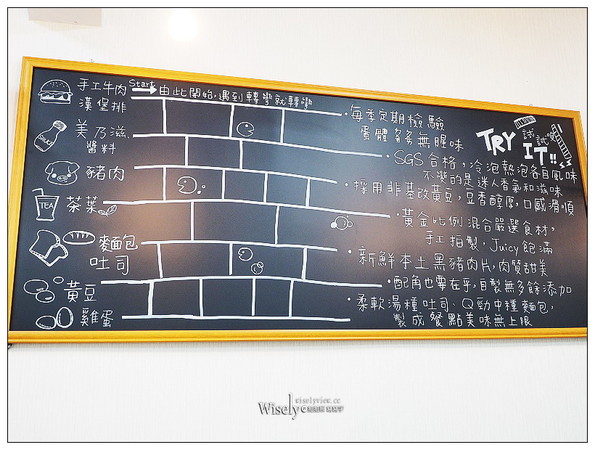 手工牛肉
漢堡排
美乃滋.
醬料
豬肉
TEA
茶葉
麵包
吐司
黃豆
雞蛋
Start
由此開始,遇到轉彎就轉彎
TRY
試試
IT!!
·每季定期檢驗
蛋體多分無腥味
·SGS合格,冷泡熱泡各自風味
不變的是迷人香氣和滋味
·採用非基改黃豆,豆香醇厚,口感滑順
·黃金比例混合嚴選食材,
手工拍製.Juicy飽滿
·新鮮本土黑豬肉片,肉質甜美
·配角也要在乎,自製無多餘添加
·柔軟湯種吐司、Q勁中種麵包,
製成餐點美味無上限
wiselyview.cc
Wisely